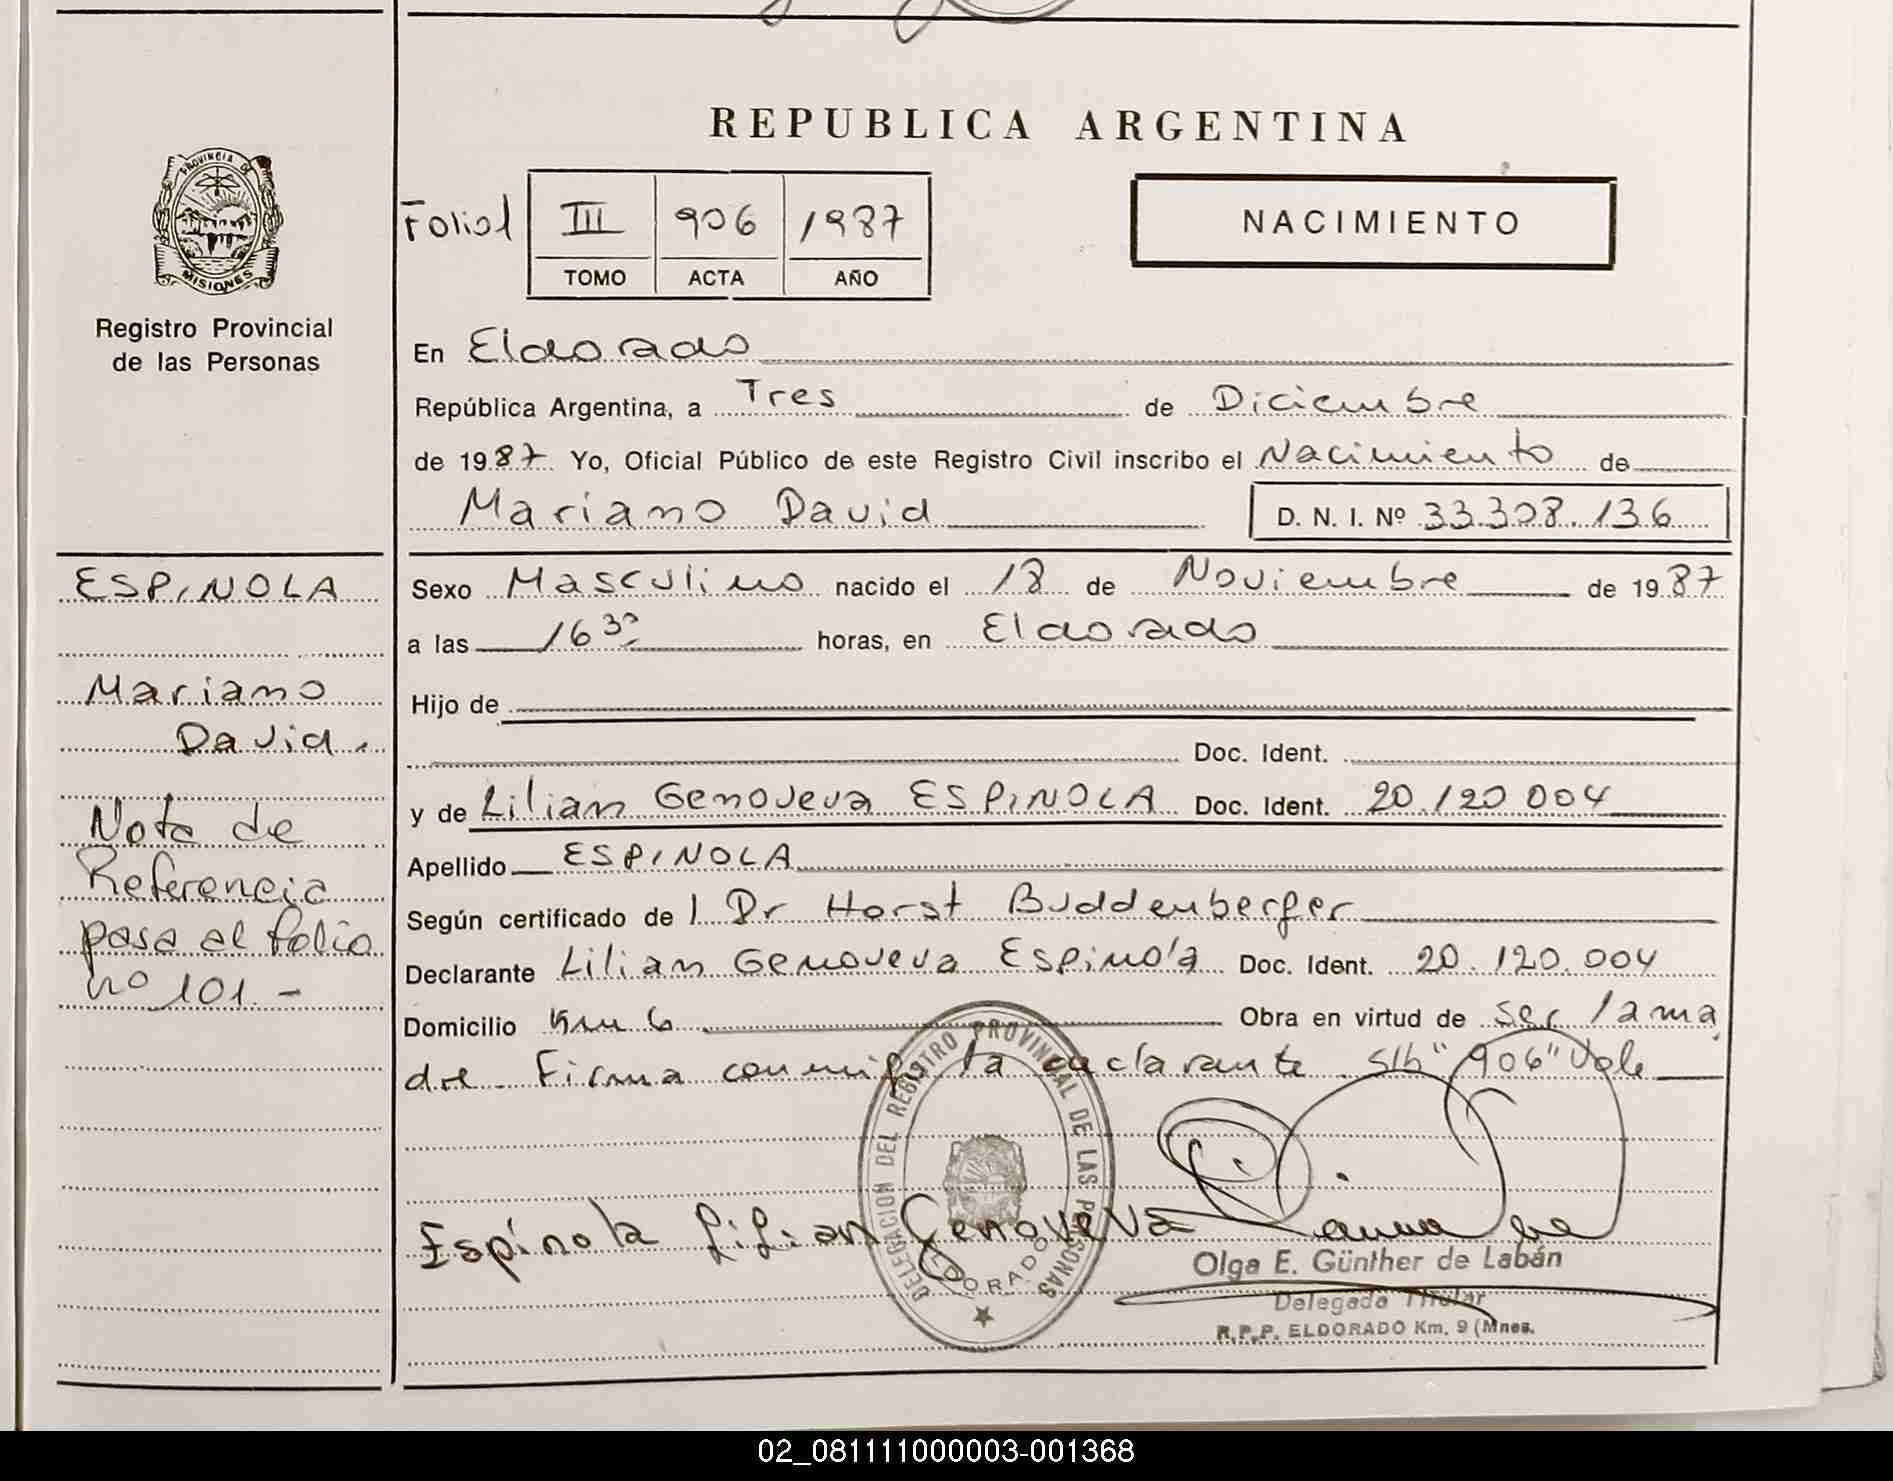 REPUBLICA ARGENTINA
PROVINCIA DE
MISIONES
Registro Provincial
de las Personas
Folio 1
III 906 1987
TOMO ACTA AÑO
NACIMIENTO
En Eldorado
República Argentina, a Tres de Diciembre
de 1987. Yo, Oficial Público de este Registro Civil inscribo el Nacimiento de
Mariano David D. N. I. Nº 33.308.136
ESPINOLA
Mariano
David.
Nota de
Referencia
pasa al folio
nº 101.-
Sexo Masculino nacido el 18 de Noviembre de 1987
a las 16 30 horas, en Eldorado
Hijo de
Doc. Ident.
y de Lilian Genoveva ESPINOLA Doc. Ident. 20.120.004
Apellido ESPINOLA
Según certificado de l Dr Horst Buddenberger
Declarante Lilian Genoveva Espinola Doc. Ident. 20.120.004
Domicilio Km 6 Obra en virtud de ser la ma
dre. Firma conmigo la declarante. S/b "906" Vale
DELEGACION DEL REGISTRO PROVINCIAL DE LAS PERSONAS
ELDORADO
Espínola Lilian Genoveva
Olga E. Günther de Labán
Delegada Titular
R.P.P. ELDORADO Km. 9 (Mnes.
02_081111000003-001368